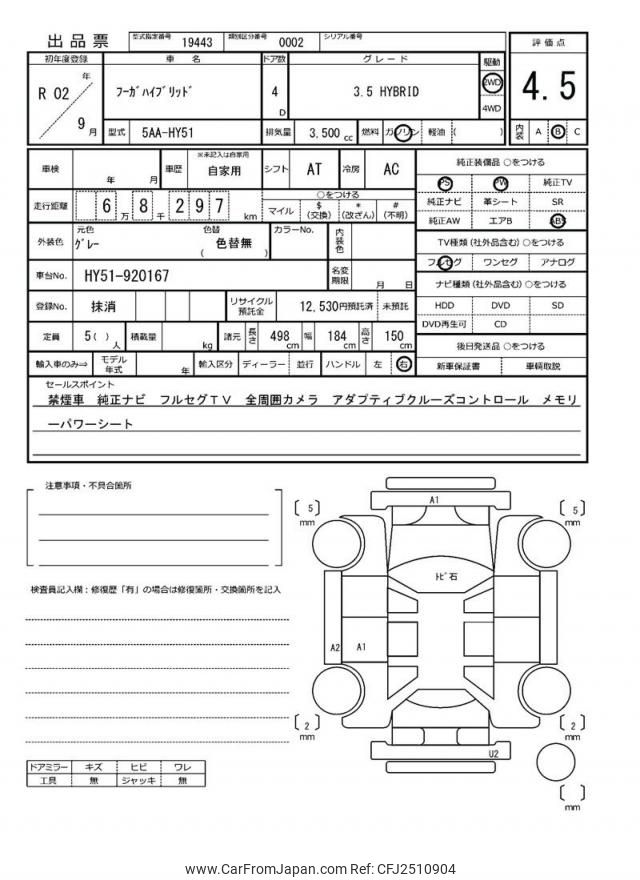 出品票
型式指定番号 19443 類別区分番号 0002 シリアル番号
初年度登録 車 名 ドア数 グレード 駆動 評価点
R 02 年 9 月
フーガハイブリッド 4 D 3.5 HYBRID 2WD 4WD
4.5
型式 5AA-HY51 排気量 3,500 cc 燃料 ガソリン 軽油 ( ) 内装 A B C
車検 年 月 車歴 ※未記入は自家用 自家用 シフト AT 冷房 AC
走行距離 6 万 8 千 2 9 7 km
○をつける
マイル $ (交換) * (改ざん) # (不明)
外装色 元色 グレー 色替 色替無 ( ) カラーNo. 内装色
車台No. HY51-920167 名変期限 月 日
登録No. 抹消 リサイクル預託金 12,530円預託済 未預託
定員 5( ) 人 積載量 kg 諸元 長さ 498 cm 幅 184 cm 高さ 150 cm
輸入車のみ⇒ モデル年式 年 輸入区分 ディーラー 並行 ハンドル 左 右
純正装備品 ○をつける
PS PW 純正TV
純正ナビ 革シート SR
純正AW エアB ABS
TV種類 (社外品含む) ○をつける
フルセグ ワンセグ アナログ
ナビ種類 (社外品含む) ○をつける
HDD DVD SD
DVD再生可 CD
後日発送品 ○をつける
新車保証書 車輌取説
セールスポイント
禁煙車 純正ナビ フルセグTV 全周囲カメラ アダプティブクルーズコントロール メモリ
ーパワーシート
注意事項・不具合箇所
検査員記入欄：修復歴「有」の場合は修復箇所・交換箇所を記入
ドアミラー キズ ヒビ ワレ
工具 無 ジャッキ 無
A1
( 5 ) mm
( 5 ) mm
トビ石
A2 A1
( 2 ) mm
( 2 ) mm
U2
( ) mm
www.CarFromJapan.com Ref: CFJ2510904